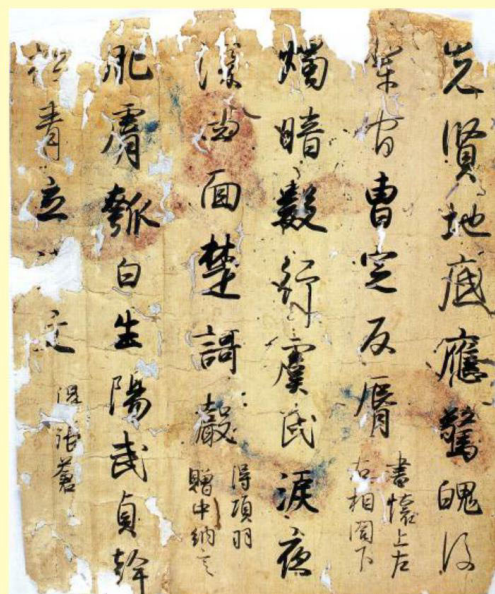 先賢地底應驚魄後
輩官曹定反脣
書懷上左
右相閤下
燭暗數行虞氏淚夜
深四面楚謌聲
得項羽
贈中納言
肥膚瓠白生陽武貞幹
松青立文
得張蒼